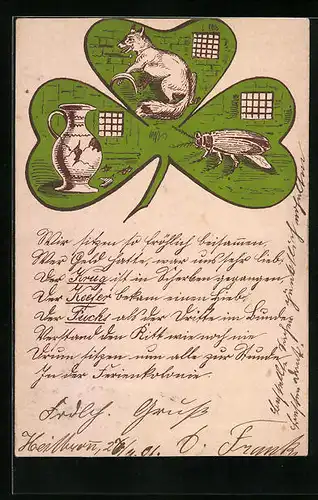 Wir sitzen so fröhlich beisammen
Wer Geld hatte, war uns sehr lieb,
Der Krug ist in Scherben gegangen
Der Kaefer bekam einen Hieb,
Der Fuchs als der Dritte im Bunde
Verstand den Ritt wie noch nie
Drum sitzen nun alle zur Stunde
In der Ferienkolonie.
Frdlch. Gruß
Heilbronn, 28/ 01. Frank
pünktlich erhalten